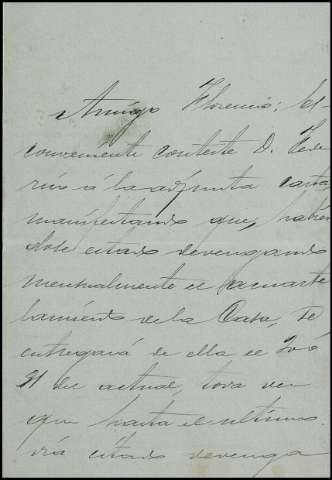 Amigo Florencio: Es
conveniente conteste D. Fede
rico á la adjunta carta
manifestando que, habien
dole estado devengando
mensualmente el
de la Casa, se
entregará de ella el
31 del actual, toda vez
que hasta el último
día estado devenga